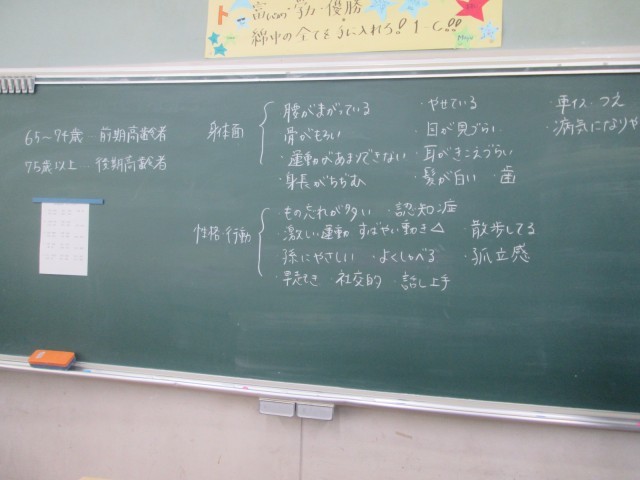 高めあい 学力 優勝
綿中の全てを手に入れろ!! 1-C!!
65～74歳…前期高齢者
75歳以上…後期高齢者
身体面
腰がまがっている ・やせている ・車イス・つえ
骨がもろい ・目が見づらい ・病気になりや
・運動があまりできない ・耳がきこえづらい
・身長がちぢむ ・髪が白い ・歯
性格・行動
・もの忘れが多い ・認知症
・激しい運動 すばやい動き△ ・散歩してる
・孫にやさしい ・よくしゃべる ・孤立感
・早起き ・社交的 ・話し上手